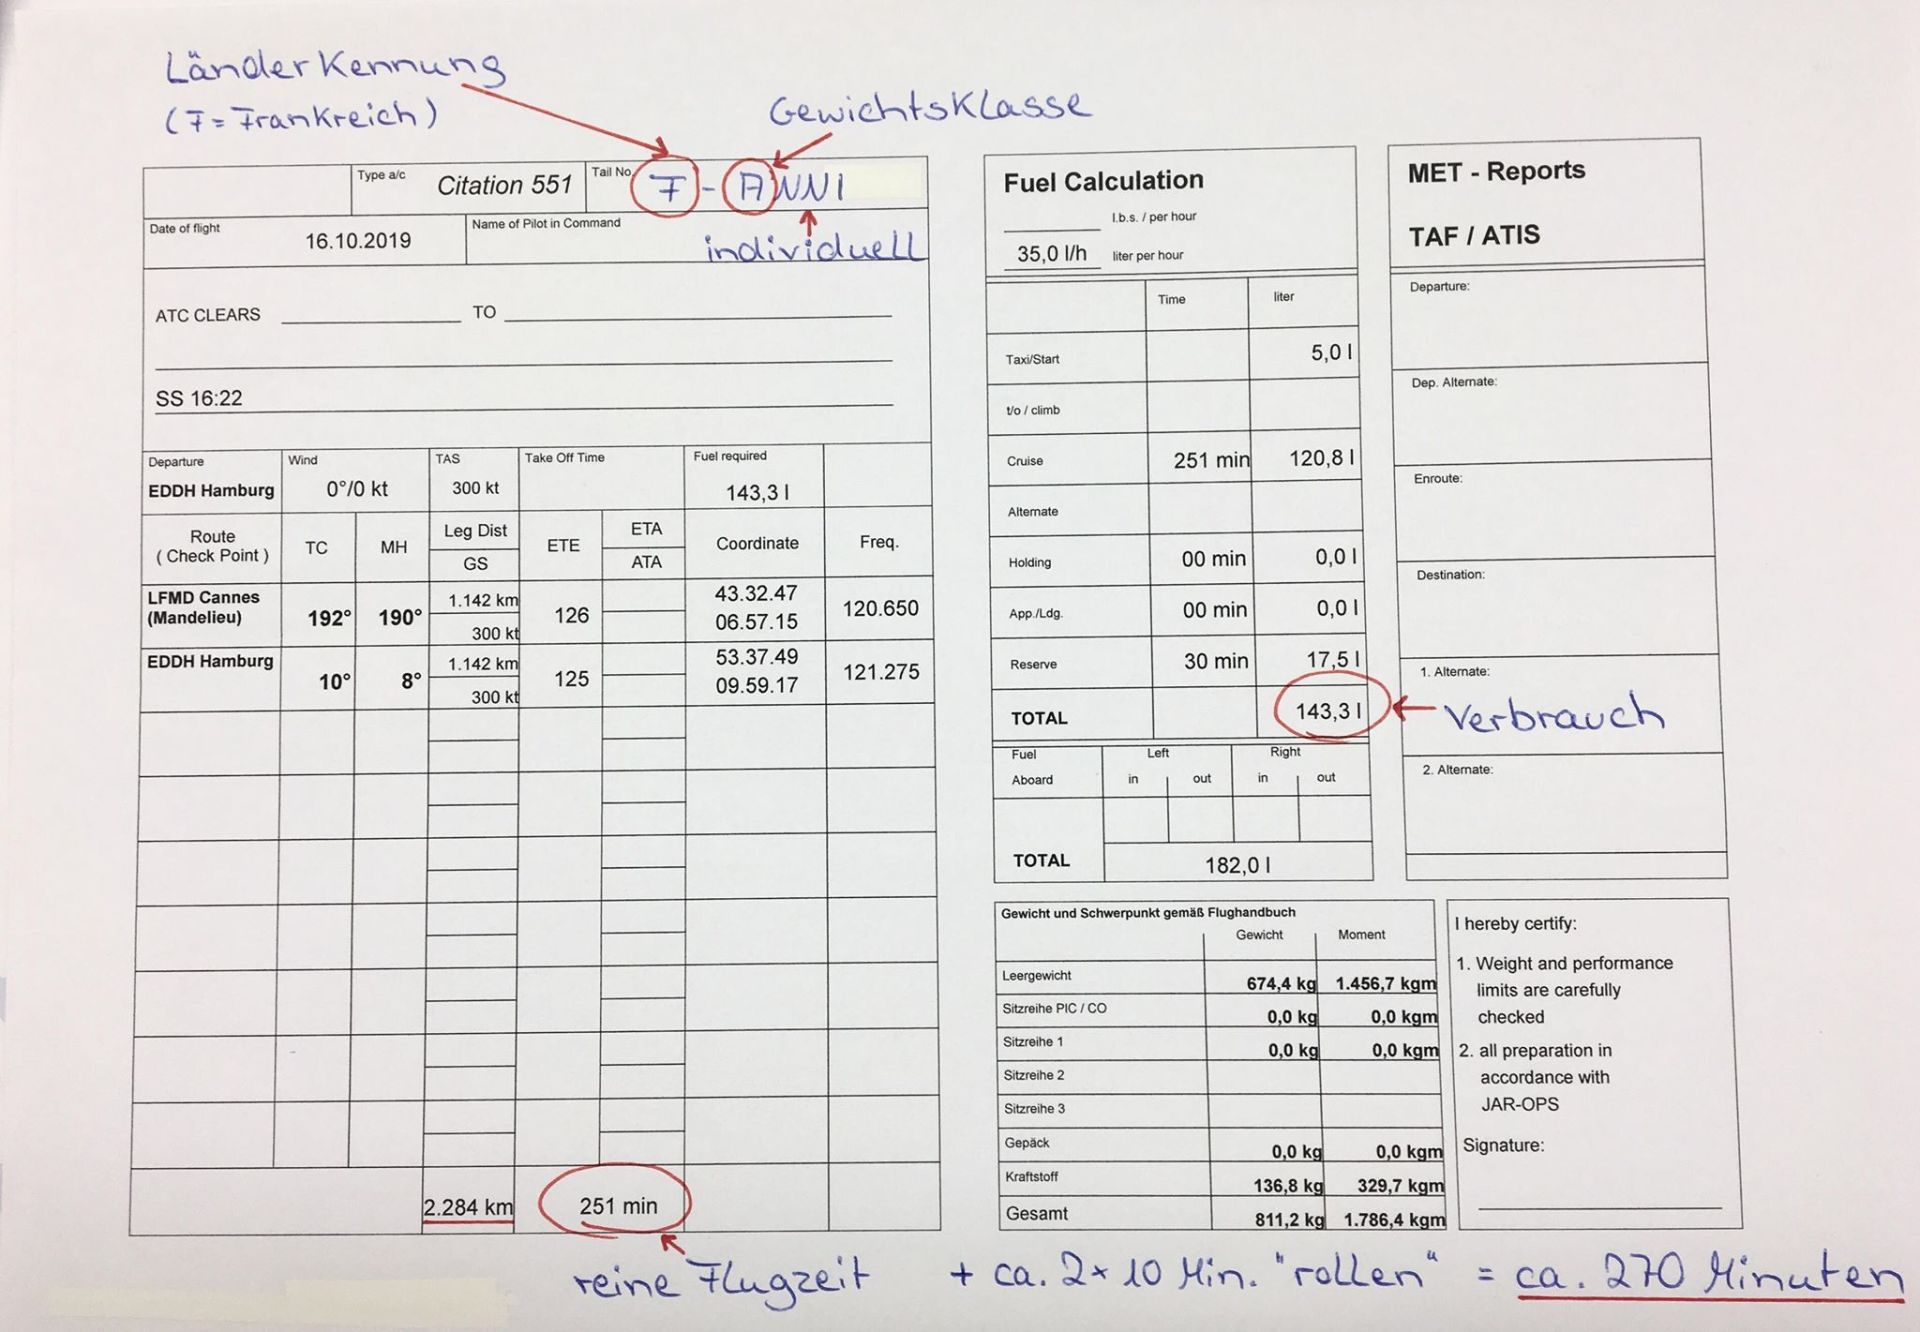 Länderkennung
(F=Frankreich)
Gewichtsklasse
Type a/c
Citation 551
Tail No.
F-ANNI
individuell
Date of flight
16.10.2019
Name of Pilot in Command
ATC CLEARS TO
SS 16:22
Departure Wind TAS Take Off Time Fuel required
EDDH Hamburg 0°/0 kt 300 kt 143,3 l
Route
( Check Point )
TC MH
Leg Dist
GS
ETE
ETA
ATA
Coordinate Freq.
LFMD Cannes
(Mandelieu)
192° 190°
1.142 km
300 kt
126
43.32.47
06.57.15
120.650
EDDH Hamburg
10° 8°
1.142 km
300 kt
125
53.37.49
09.59.17
121.275
2.284 km 251 min
Fuel Calculation
l.b.s. / per hour
35,0 l/h liter per hour
Time liter
Taxi/Start 5,0 l
t/o / climb
Cruise 251 min 120,8 l
Alternate
Holding 00 min 0,0 l
App./Ldg. 00 min 0,0 l
Reserve 30 min 17,5 l
TOTAL 143,3 l
Verbrauch
Fuel
Aboard
Left Right
in out in out
TOTAL 182,0 l
MET - Reports
TAF / ATIS
Departure:
Dep. Alternate:
Enroute:
Destination:
1. Alternate:
2. Alternate:
Gewicht und Schwerpunkt gemäß Flughandbuch
Gewicht Moment
Leergewicht 674,4 kg 1.456,7 kgm
Sitzreihe PIC / CO 0,0 kg 0,0 kgm
Sitzreihe 1 0,0 kg 0,0 kgm
Sitzreihe 2
Sitzreihe 3
Gepäck 0,0 kg 0,0 kgm
Kraftstoff 136,8 kg 329,7 kgm
Gesamt 811,2 kg 1.786,4 kgm
I hereby certify:
1. Weight and performance
limits are carefully
checked
2. all preparation in
accordance with
JAR-OPS
Signature:
reine Flugzeit + ca. 2x10 Min. "rollen" = ca. 270 Minuten